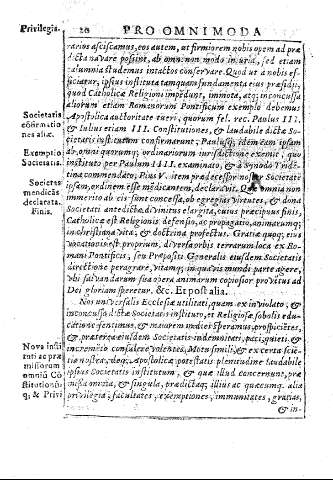 Privilegia. 20 PRO OMNIMODA
rarios asciscamus, eos autem, ut firmiorem nobis opem ad præ
dicta navare possint, ab omni non modo injuria, sed etiam
calumnia studemus intactos conservare. Quod ut a nobis ef-
ficiatur, ipsius instituta tamquam fundamenta ejus præsidij,
quod Catholicæ Religioni impendit, immota, atq; inconcussa
aliorum etiam Romanorum Pontificum exemplo debemus
Societatis
cõfirmatio
nes aliæ.
Apostolica authoritate tueri, quorum fel. rec. Paulus III.
& Iulius etiam III. Constitutiones, & laudabile dictæ So-
cietatis institutum confirmarunt, Paulusq; idem eam ipsam
Exemptio
Societatis.
ab omni quorumq; ordinariorum jurisdictione exemit, quo
instituto per Paulum IIII. examinato, & à Synodo Tride-
tina commendato, Pius V. item prædecessor noster Societatē
Societas
mendicãs
declarata.
Finis.
ipsam, ordinem esse mendicantem, declaravit. Quæ omnia non
immerito ab eis sunt concessa, ob egregias virtutes, & dona
Societati antedictæ divinitus elargita, cuius præcipuus finis,
Catholicæ est Religionis defensio, ac propagatio, animarumq;
in christiana vita, & doctrina profectus. Gratia quoq; eius
vocationis est proprium, diversa orbis terrarum loca ex Ro-
mani Pontificis, seu Præpositi Generalis eiusdem Societatis
directione peragrare, vitamq; in quavis mundi parte agere,
ubi salvandarum ope animarum copiosior proventus ad
Dei gloriam speretur. &c. Et post alia.
Nos universalis Ecclesiæ utilitati, quam ex inviolato, &
inconcusso dictæ Societatis instituto, et Religiosæ sobolis edu-
catione sentimus, & maiorem in dies speramus, prospicietes,
& præterea eiusdem Societatis indemnitati, paci, quieti, &
Nova insti
tuti ac præ
missorum
omniũ Cõ
stitutionũ
q; & Privi
incremēto consulere volentes, Motu simili, & ex certa scie-
tia nostra, deq; Apostolica potestatis plenitudine laudabile
ipsius Societatis institutum, & quæ illud concernunt, præ
missa omnia, & singula, prædictaq; illius ac quæcumq; alia
privilegia, facultates, exemptiones, immunitates, gratias,
& in-